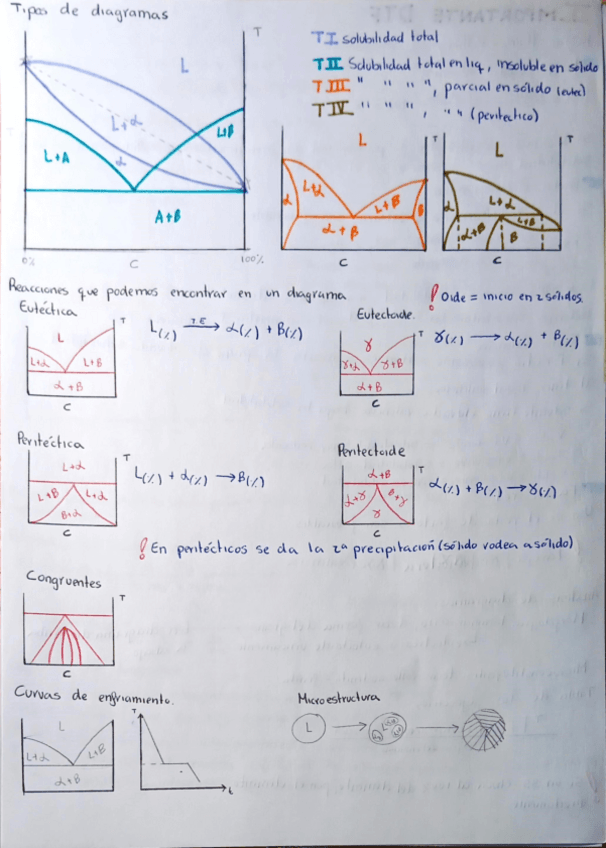 Tipos de diagramas
T
L
L+α
α
L+A
L+B
A+B
0%
C
100%
TI solubilidad total
TII Solubilidad total en liq, insoluble en sólido
TIII " " " ", parcial en sólido (eutec)
TIV " " " , " " (peritectico)
L
T
α
L+α
L+B
B
α+B
C
L
T
α
L+α
L+B
α+B
B
C
Reacciones que podemos encontrar en un diagrama
! Oide = inicio en 2 sólidos.
Eutéctica
L
T
L+α
L+B
α+B
C
L(%) T.E → α(%) + B(%)
Eutectoide.
γ
T
γ+α
γ+B
α+B
C
γ(%) → α(%) + B(%)
Peritéctica
L+α
T
L+B
L+α
B+α
C
L(%) + α(%) → B(%)
Peritectoide
α+B
T
α+γ
B+γ
γ
C
α(%) + B(%) → γ(%)
! En peritécticos se da la 2ª precipitación (sólido rodea a sólido)
Congruentes
T
C
Curvas de enfriamiento.
L
L+α
L+B
α+B
T
t
Microestructura
L